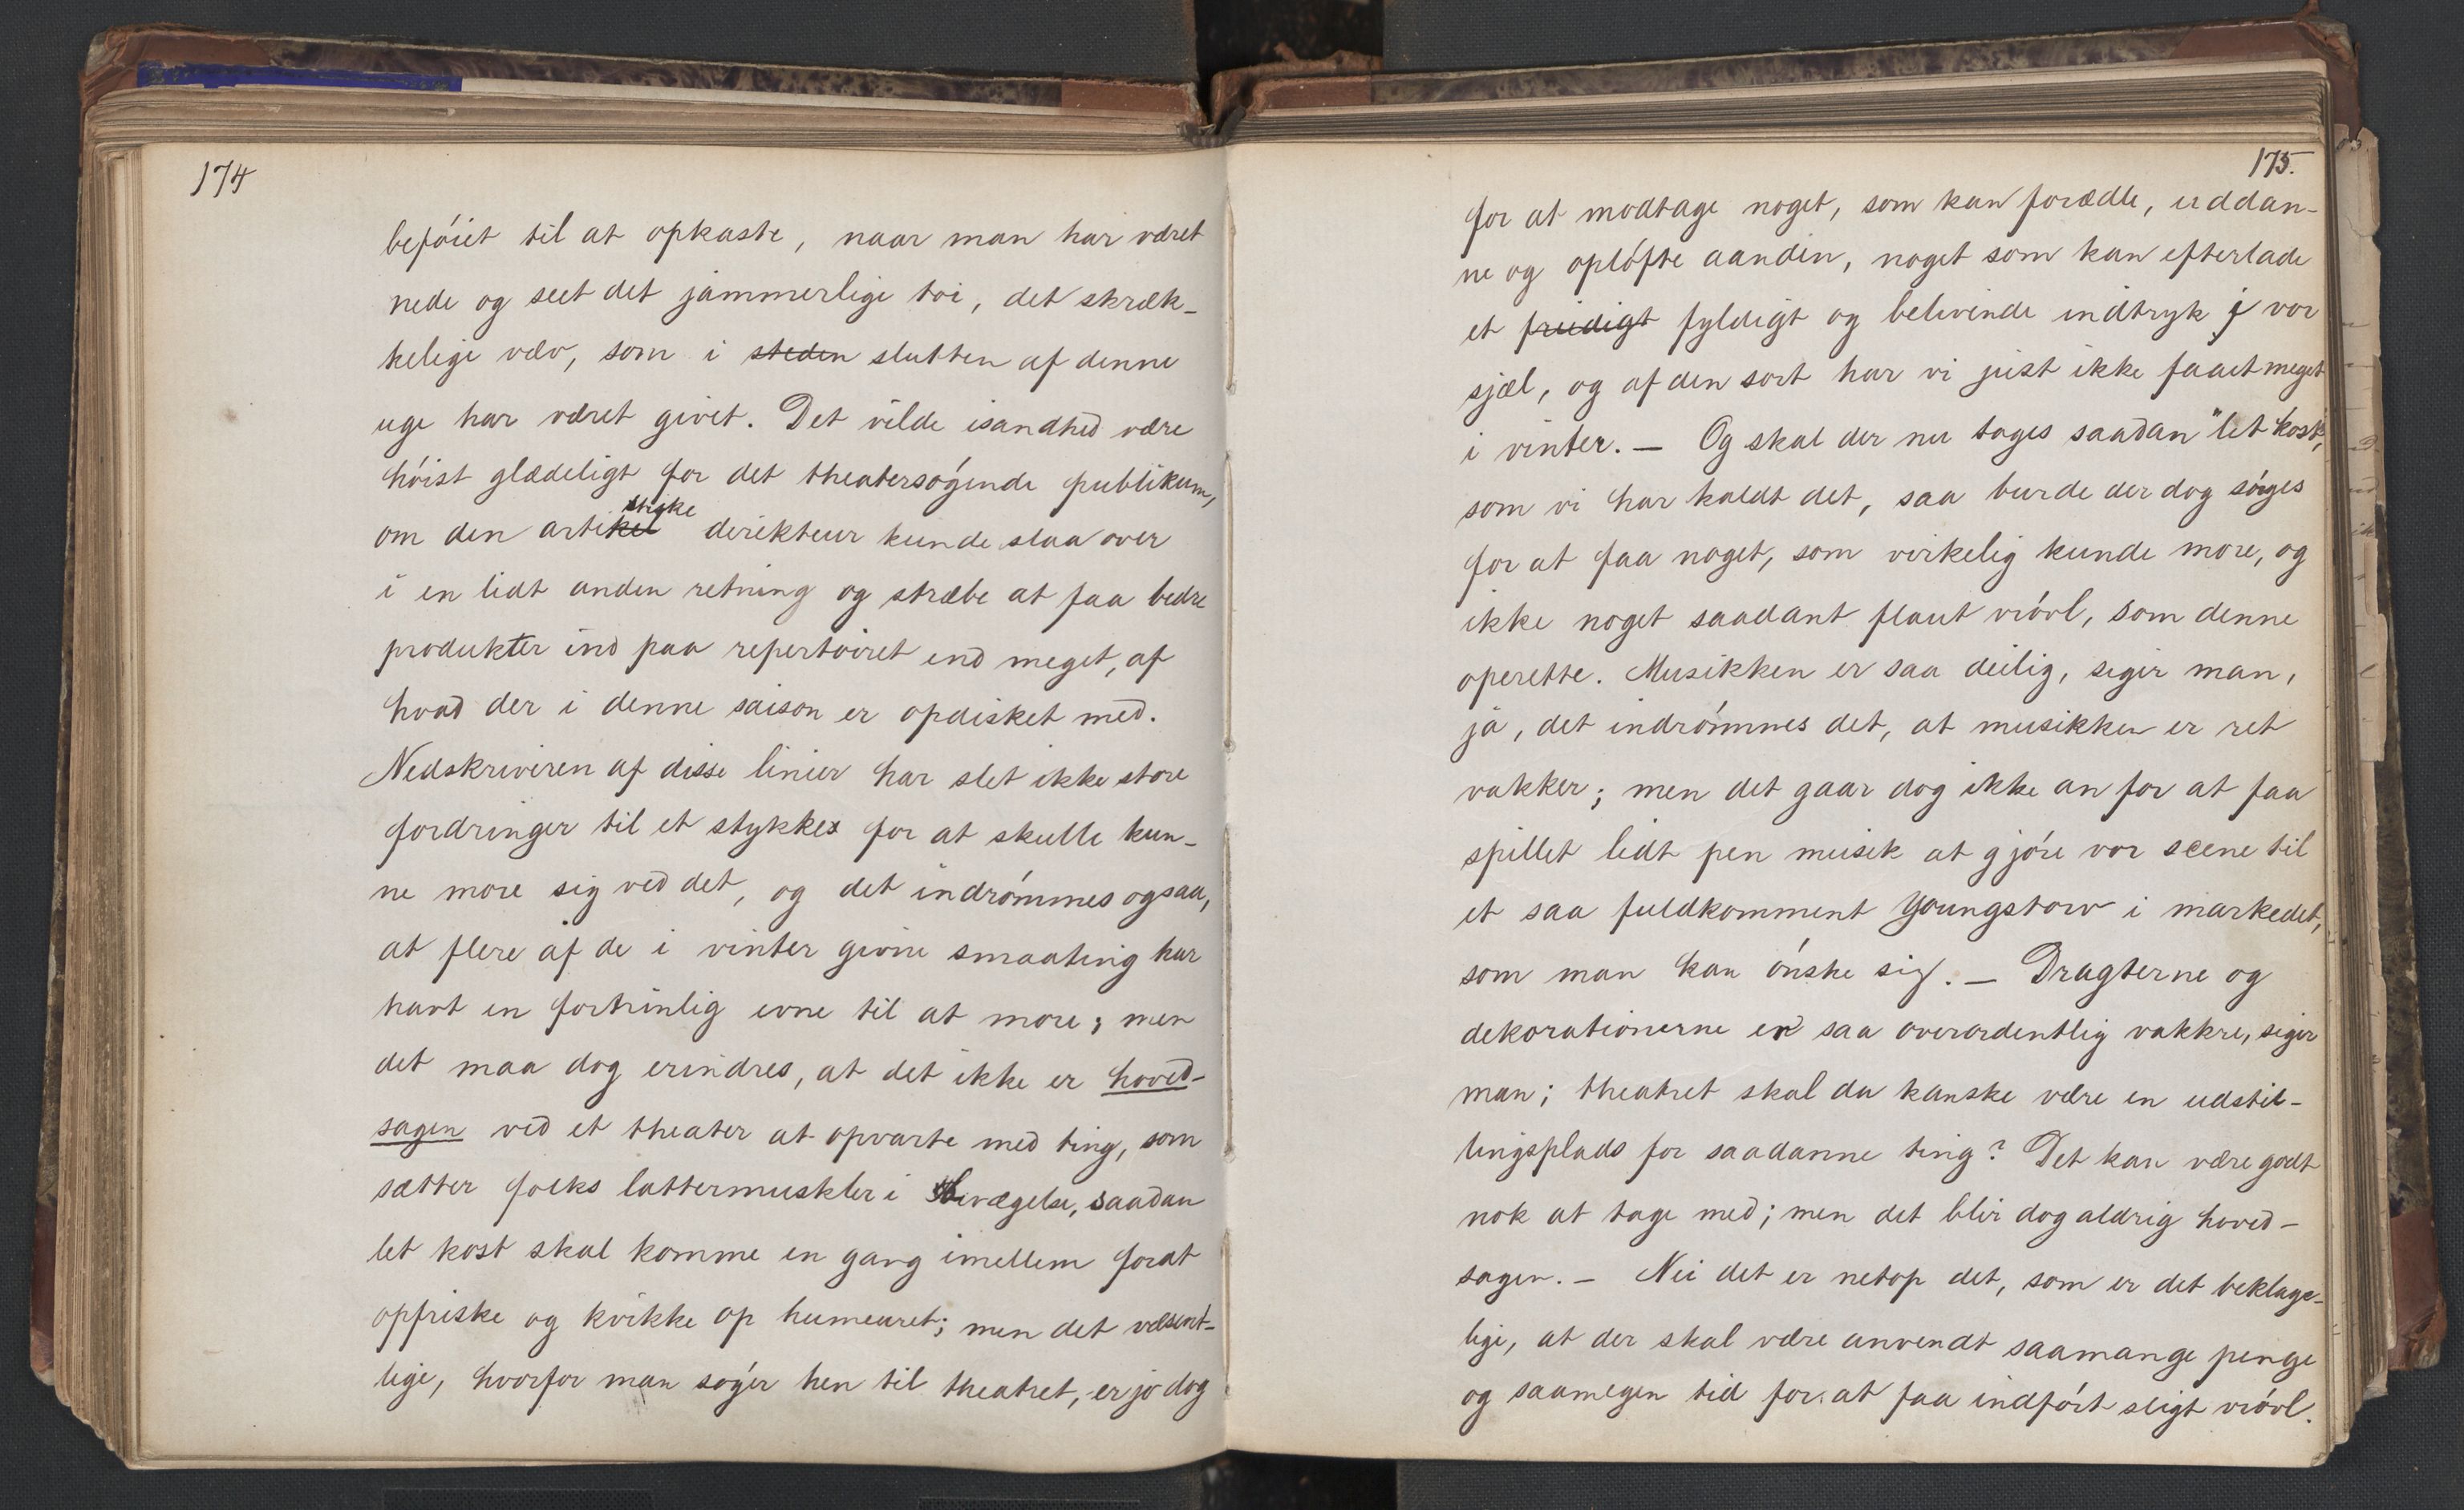 174
beföiet til at opkaste, naar man har været
nede og seet det jammerlige töi, det skræk-
kelige væv, som i steden slutten af denne
uge har været givet. Det vilde isandhed være
höist glædeligt for det theatersögende publikum,
om den artikel stiske direkteur kunde slaa over
i en lidt anden retning og stræbe at faa bedre
produkter ind paa repertoiret end meget, af
hvad der i denne saison er opdisket med.
Nedskriveren af disse linier har slet ikke store
fordringer til et stykke for at skulle kun-
ne more sig ved det, og det indrömmes ogsaa,
at flere af de i vinter givne smaating har
havt en fortrinlig evne til at more; men
det maa dog erindres, at det ikke er hoved-
sagen ved et theater at opvarte med ting, som
sætter folks lattermuskler i bevægelse, saadan
let kost skal komme en gang imellem forat
opfriske og kvikke op humeuret; men det væsent-
lige, hvorfor man söger hen til theatret, er jo dog
175.
for at modtage noget, som kan forædle, uddan-
ne og oplöfte aanden, noget som kan efterlade
et freidigt fyldigt og belivende indtryk i vor
sjæl, og af den sort har vi just ikke faaet meget
i vinter. — Og skal der nu tages saadan "let kost",
som vi har kaldt det, saa burde der dog sörges
for at faa noget, som virkelig kunde more, og
ikke noget saadant flaut vrövl, som denne
operette. Musikken er saa deilig, siger man,
ja, det indrömmes det, at musikken er ret
vakker; men det gaar dog ikke an for at faa
spillet lidt pen musik at gjöre vor scene til
et saa fuldkomment Youngstorv i markedet,
som man kan önske sig. — Dragterne og
dekorationerne er saa overordentlig vakkre, siger
man; theatret skal da kanske være en udstil-
lingsplads for saadanne ting? Det kan være godt
nok at tage med; men det blir dog aldrig hoved-
sagen. — Nei det er netop det, som er det beklage-
lige, at der skal være anvendt saamange penge
og saamegen tid for at faa indfört sligt vrövl.